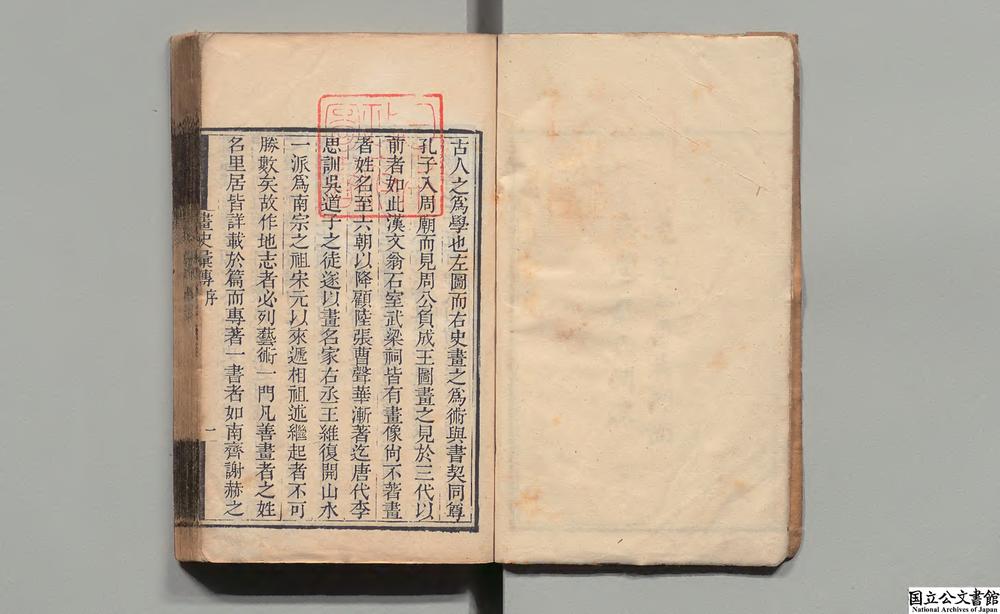 古人之爲學也左圖而右史畫之爲術與書契同尊
孔子入周廟而見周公負成王圖畫之見於三代以
前者如此漢文翁石室武梁祠皆有畫像尙不著畫
者姓名至六朝以降顧陸張曹聲華漸著迄唐代李
思訓吳道子之徒遂以畫名家右丞王維復開山水
一派爲南宗之祖宋元以來遞相祖述繼起者不可
勝數矣故作地志者必列藝術一門凡善畫者之姓
名里居皆詳載於篇而專著一書者如南齊謝赫之
畫史彙傳 序 一
国立公文書館
National Archives of Japan